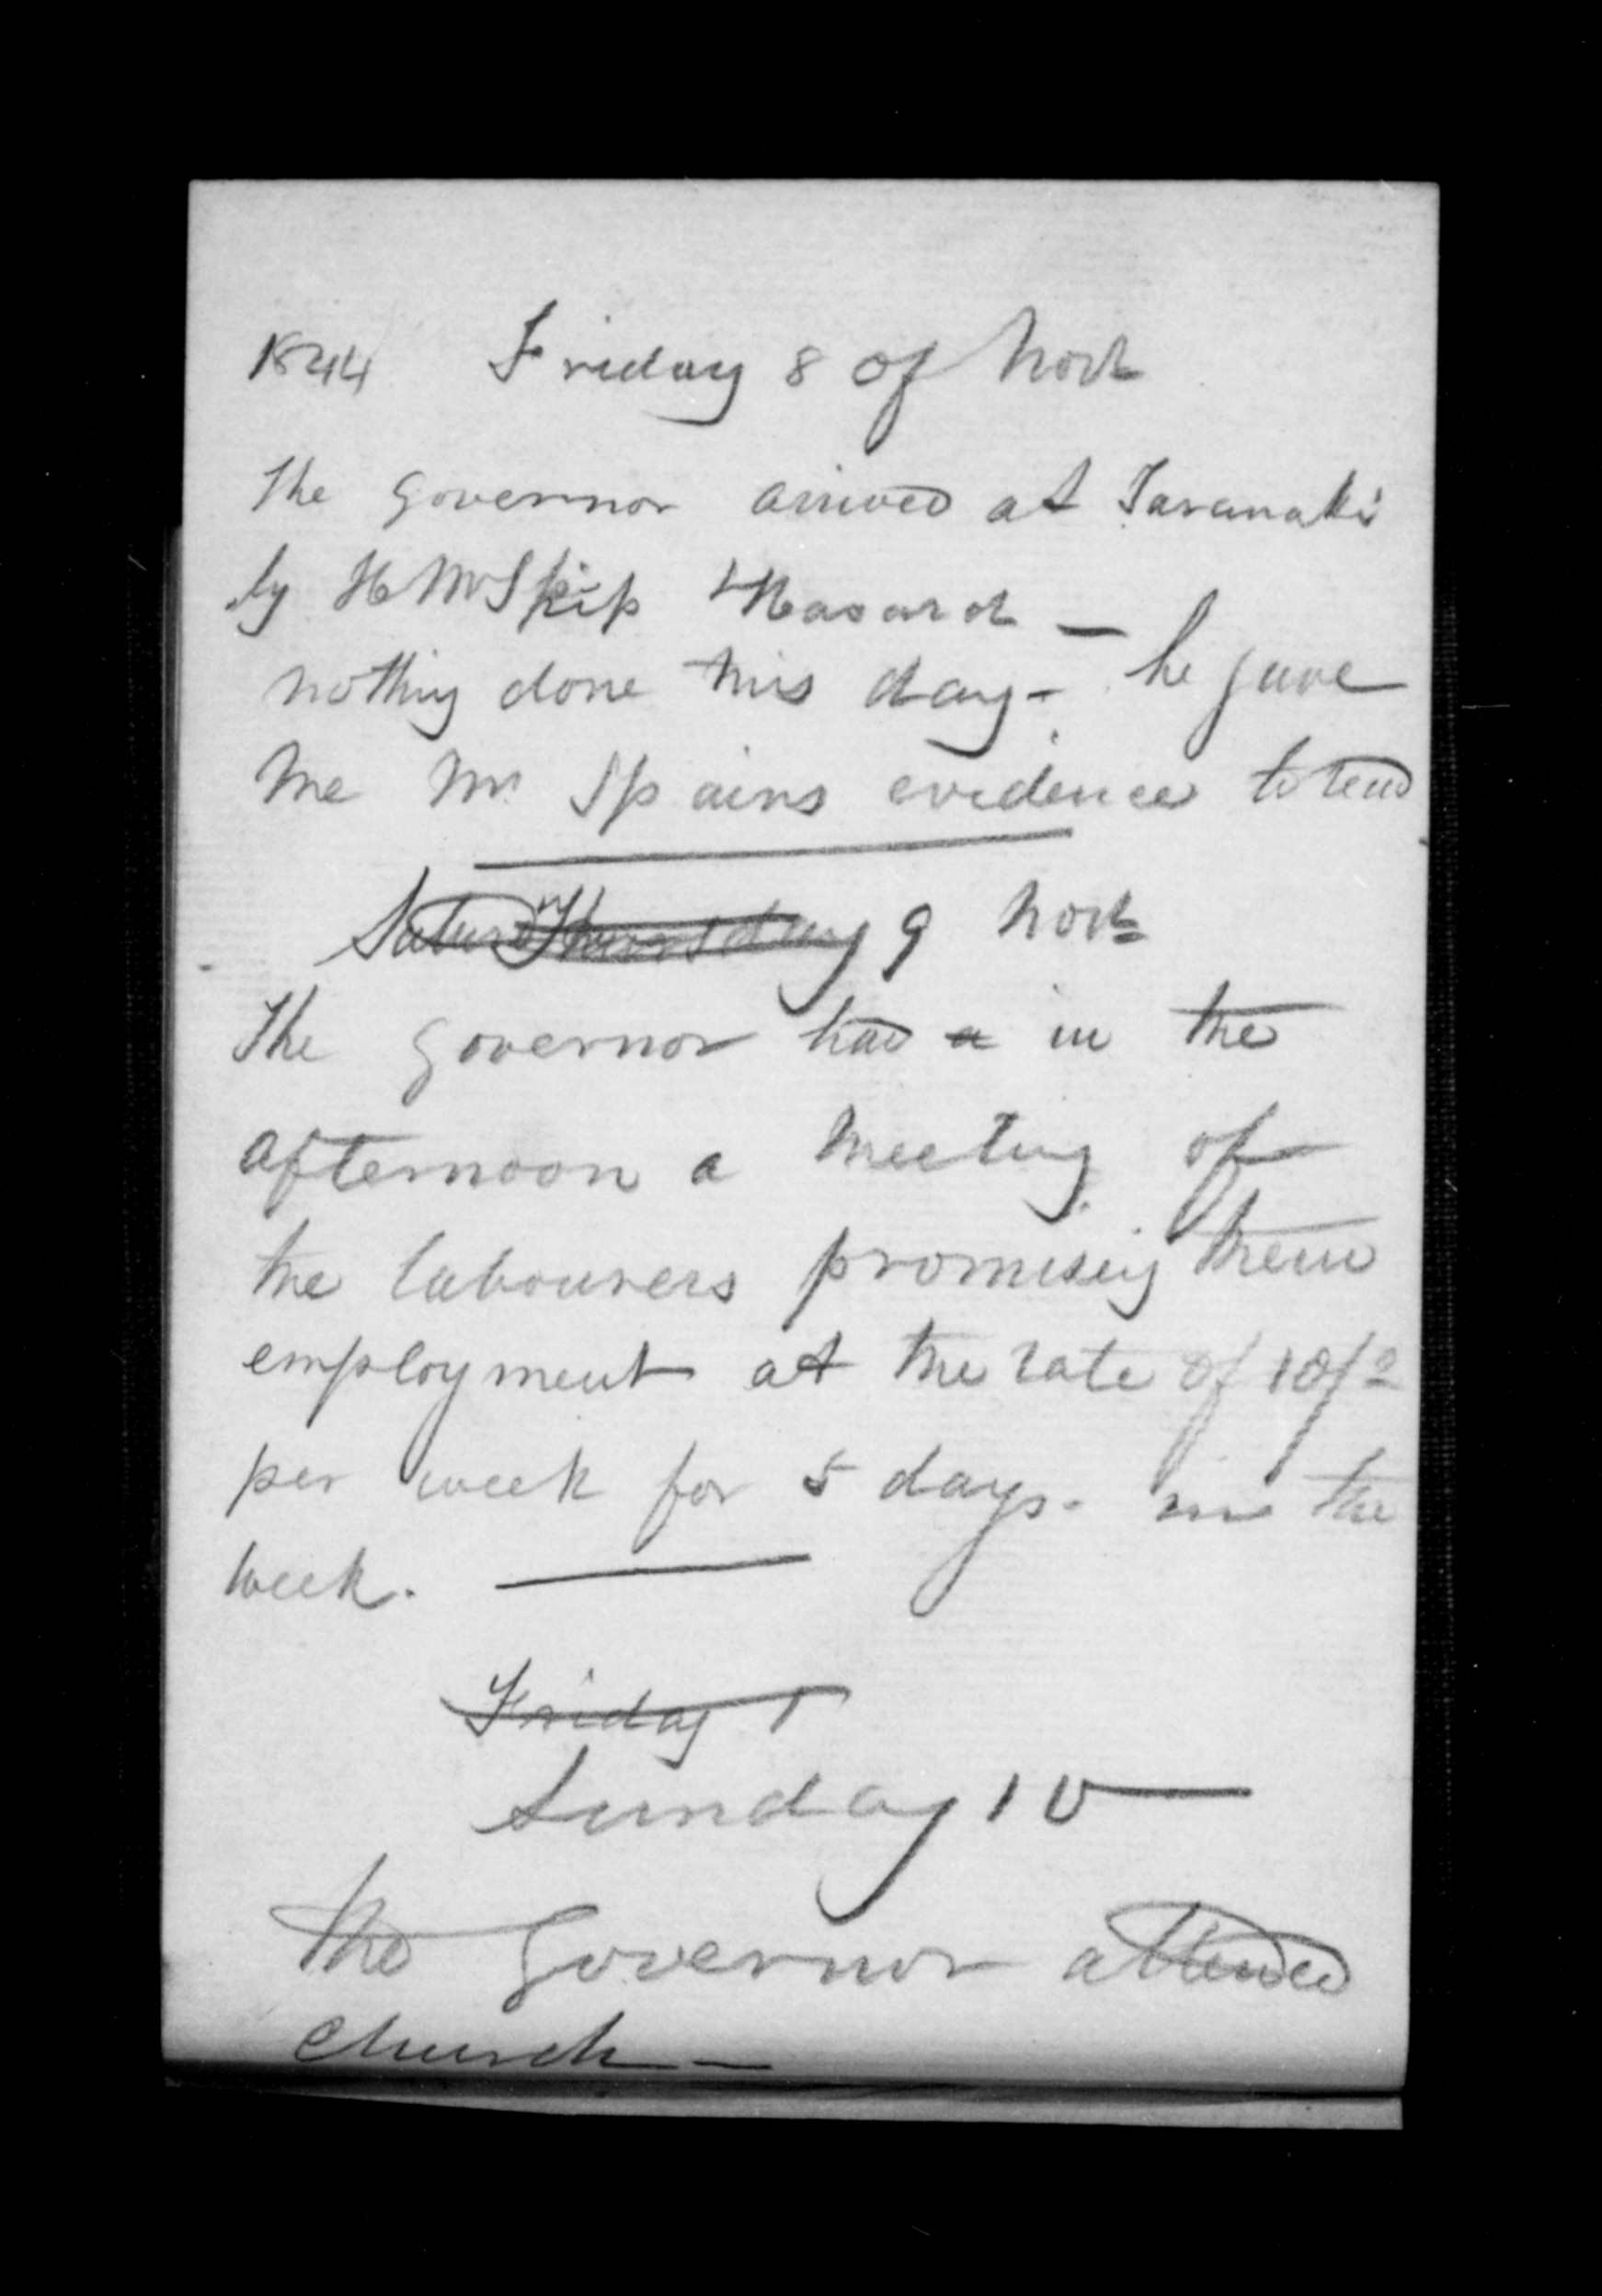 1844 Friday 8 of Novr
The Governor arrived at Taranaki
by H M Ship Hasard —
nothing done this day - he gave
me Mr Spains evidence to read
Saturday Thursday 9 Novr
The Governor had a in the
afternoon a meeting of
the labourers promising them
employment at the rate of 10/-
per week for 5 days. in the
week.
Friday 1
Sunday 10
The Governor attended
Church —